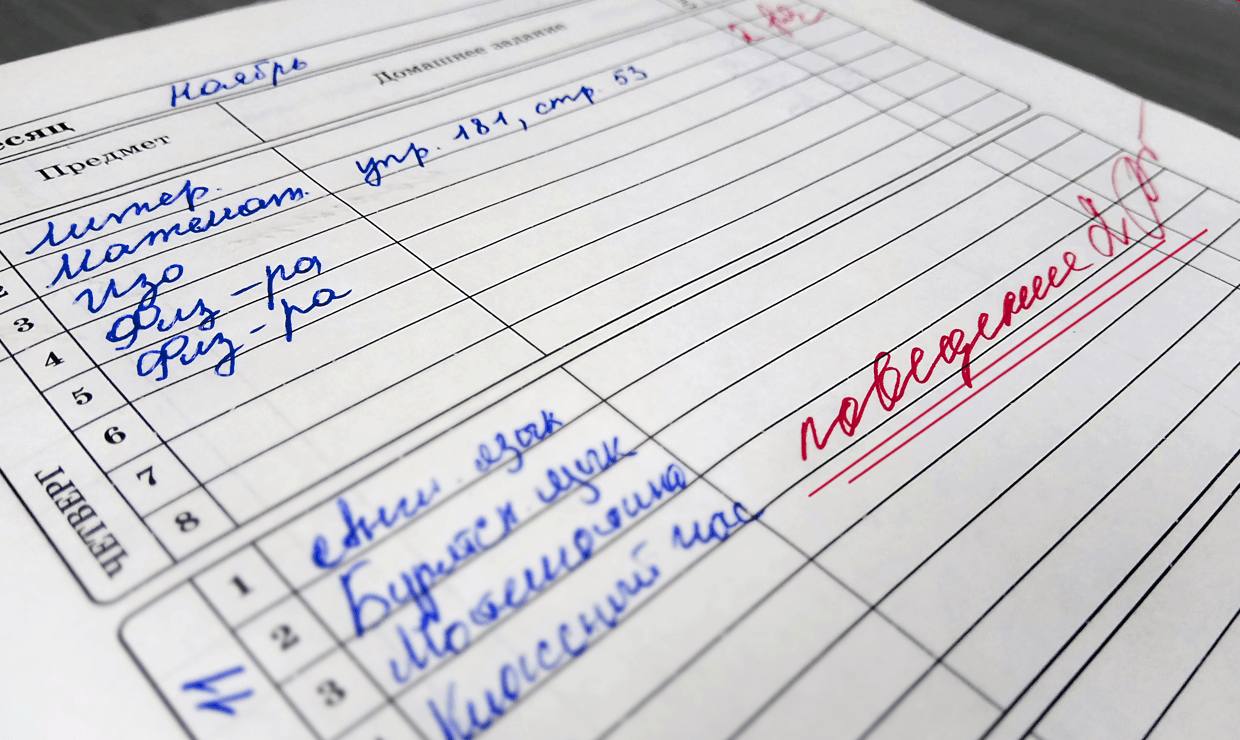 есяц Ноябрь
Предмет Домашнее задание
Литер.
2 Математ. упр. 181, стр. 53
3 ИЗО
4 Физ-ра
5 Физ-ра
6
7
8
ЧЕТВЕРГ
поведение
1 Англ. язык
2 Бурятск. язык
3 Математика
Классный час